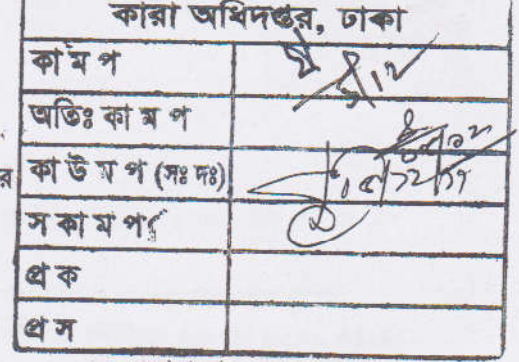 কারা অধিদপ্তর, ঢাকা
কা ম প
অতিঃ কা ম প
র কা উ ম প (সঃ দঃ)
স কা ম প
প্র ক
প্র স